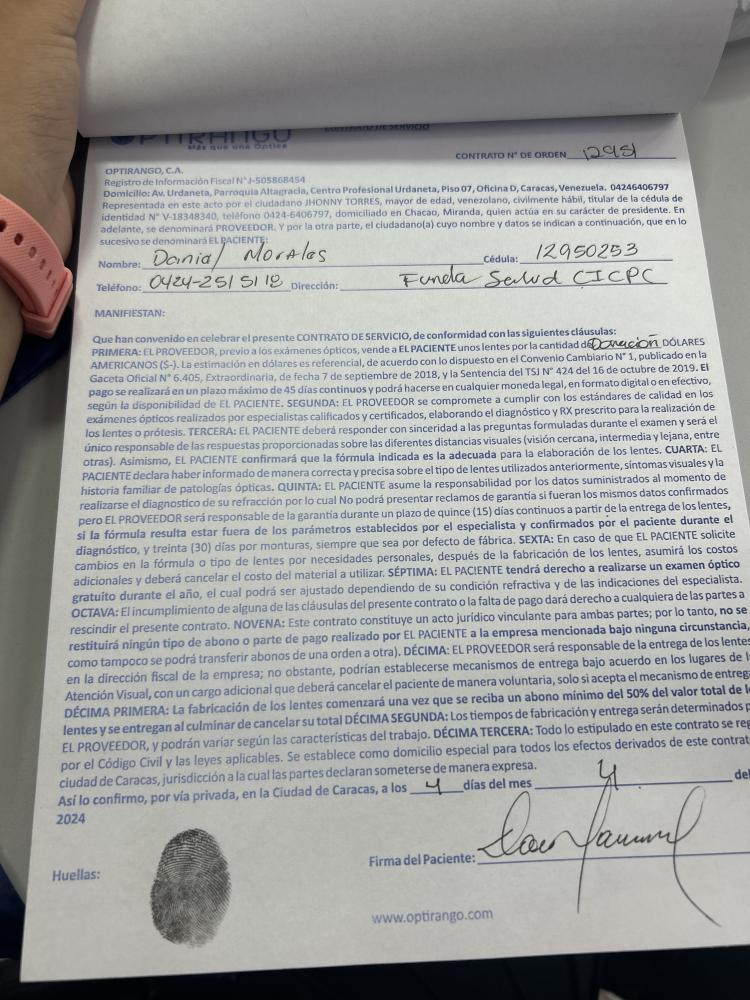 OPTIRANGO
CONTRATO DE SERVICIO
Más que una Óptica
CONTRATO N° DE ORDEN 12951
OPTIRANGO, C.A.
Registro de Información Fiscal N°J-505868454
Domicilio: Av. Urdaneta, Parroquia Altagracia, Centro Profesional Urdaneta, Piso 07, Oficina D, Caracas, Venezuela. 04246406797
Representada en este acto por el ciudadano JHONNY TORRES, mayor de edad, venezolano, civilmente hábil, titular de la cédula de
identidad N° V-18348340, teléfono 0424-6406797, domiciliado en Chacao, Miranda, quien actúa en su carácter de presidente. En
adelante, se denominará PROVEEDOR. Y por la otra parte, el ciudadano(a) cuyo nombre y datos se indican a continuación, que en lo
sucesivo se denominará EL PACIENTE:
Nombre: Danial Morales Cédula: 12950253
Teléfono: 0424-251 51 12 Dirección: Funda Salud CICPC
MANIFIESTAN:
Que han convenido en celebrar el presente CONTRATO DE SERVICIO, de conformidad con las siguientes cláusulas:
PRIMERA: EL PROVEEDOR, previo a los exámenes ópticos, vende a EL PACIENTE unos lentes por la cantidad de Donación DÓLARES
AMERICANOS ($-). La estimación en dólares es referencial, de acuerdo con lo dispuesto en el Convenio Cambiario N° 1, publicado en la
Gaceta Oficial N° 6.405, Extraordinaria, de fecha 7 de septiembre de 2018, y la Sentencia del TSJ N° 424 del 16 de octubre de 2019. El
pago se realizará en un plazo máximo de 45 días continuos y podrá hacerse en cualquier moneda legal, en formato digital o en efectivo,
según la disponibilidad de EL PACIENTE. SEGUNDA: EL PROVEEDOR se compromete a cumplir con los estándares de calidad en los
exámenes ópticos realizados por especialistas calificados y certificados, elaborando el diagnóstico y RX prescrito para la realización de
los lentes o prótesis. TERCERA: EL PACIENTE deberá responder con sinceridad a las preguntas formuladas durante el examen y será el
único responsable de las respuestas proporcionadas sobre las diferentes distancias visuales (visión cercana, intermedia y lejana, entre
otras). Asimismo, EL PACIENTE confirmará que la fórmula indicada es la adecuada para la elaboración de los lentes. CUARTA: EL
PACIENTE declara haber informado de manera correcta y precisa sobre el tipo de lentes utilizados anteriormente, síntomas visuales y la
historia familiar de patologías ópticas. QUINTA: EL PACIENTE asume la responsabilidad por los datos suministrados al momento de
realizarse el diagnostico de su refracción por lo cual No podrá presentar reclamos de garantía si fueran los mismos datos confirmados
pero EL PROVEEDOR será responsable de la garantía durante un plazo de quince (15) días continuos a partir de la entrega de los lentes,
si la fórmula resulta estar fuera de los parámetros establecidos por el especialista y confirmados por el paciente durante el
diagnóstico, y treinta (30) días por monturas, siempre que sea por defecto de fábrica. SEXTA: En caso de que EL PACIENTE solicite
cambios en la fórmula o tipo de lentes por necesidades personales, después de la fabricación de los lentes, asumirá los costos
adicionales y deberá cancelar el costo del material a utilizar. SÉPTIMA: EL PACIENTE tendrá derecho a realizarse un examen óptico
gratuito durante el año, el cual podrá ser ajustado dependiendo de su condición refractiva y de las indicaciones del especialista.
OCTAVA: El incumplimiento de alguna de las cláusulas del presente contrato o la falta de pago dará derecho a cualquiera de las partes a
rescindir el presente contrato. NOVENA: Este contrato constituye un acto jurídico vinculante para ambas partes; por lo tanto, no se
restituirá ningún tipo de abono o parte de pago realizado por EL PACIENTE a la empresa mencionada bajo ninguna circunstancia,
como tampoco se podrá transferir abonos de una orden a otra). DÉCIMA: EL PROVEEDOR será responsable de la entrega de los lentes
en la dirección fiscal de la empresa; no obstante, podrían establecerse mecanismos de entrega bajo acuerdo en los lugares de
Atención Visual, con un cargo adicional que deberá cancelar el paciente de manera voluntaria, solo si acepta el mecanismo de
DÉCIMA PRIMERA: La fabricación de los lentes comenzará una vez que se reciba un abono mínimo del 50% del valor total de
lentes y se entregan al culminar de cancelar su total DÉCIMA SEGUNDA: Los tiempos de fabricación y entrega serán determinados
EL PROVEEDOR, y podrán variar según las características del trabajo. DÉCIMA TERCERA: Todo lo estipulado en este contrato se
por el Código Civil y las leyes aplicables. Se establece como domicilio especial para todos los efectos derivados de este
ciudad de Caracas, jurisdicción a la cual las partes declaran someterse de manera expresa.
Así lo confirmo, por vía privada, en la Ciudad de Caracas, a los 4 días del mes 4 del
2024
Huellas:
Firma del Paciente:
www.optirango.com